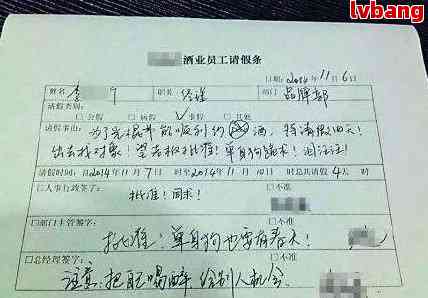 lvbang
酒业员工请假条
日期:2014年11月6日
姓名 李 职务 经理 部门 品牌部
请假类别:
□公假 □病假 ✓事假 □其他
请假事由: 为了光棍节能顺利约 酒,特请假四天!
出去找对象!望老板批准!单身狗跪求!泪汪汪!
请假时间:自2014年11月7日至2014年11月10日时总共请假4天 时
□人事行政签字: □不准
批准!同求!
□部门主管签字: □不准
批准!单身狗也要有春天!
□总经理签字: □不准
注意:把酒喝醉 给别人机会